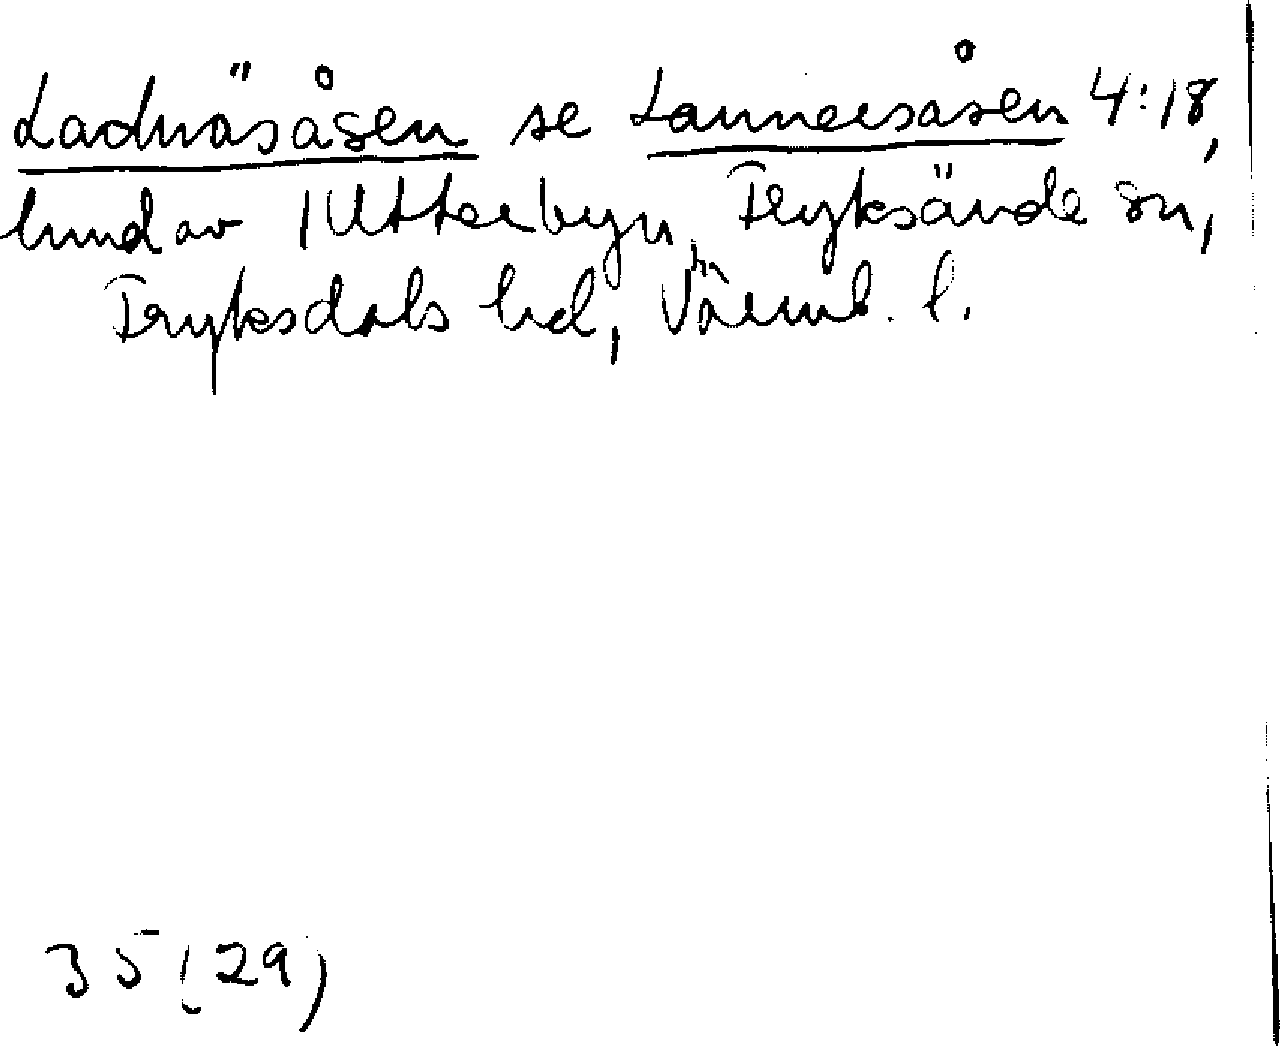 Ladnäsåsen se Lannersåsen 4:18,
hmd av 1 Utterbyn, Fryksände sn,
Fryksdals hd, Värml. l.
35 (29)